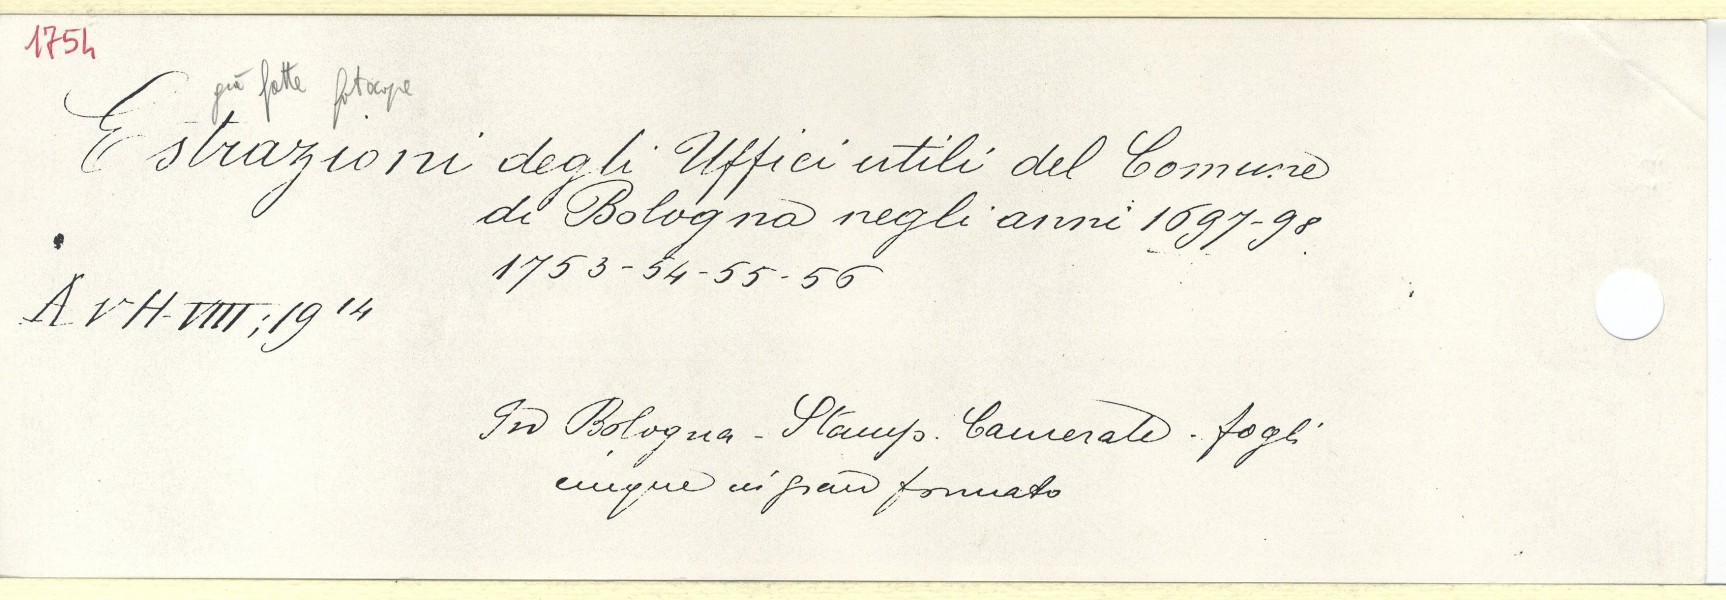 1754
già fatte fotocopie
Estrazioni degli Uffici utili del Comune
di Bologna negli anni 1697-98
1753-54-55-56
A V H-VIII; 19 14
In Bologna - Stamp. Camerale - fogli
cinque in gran formato